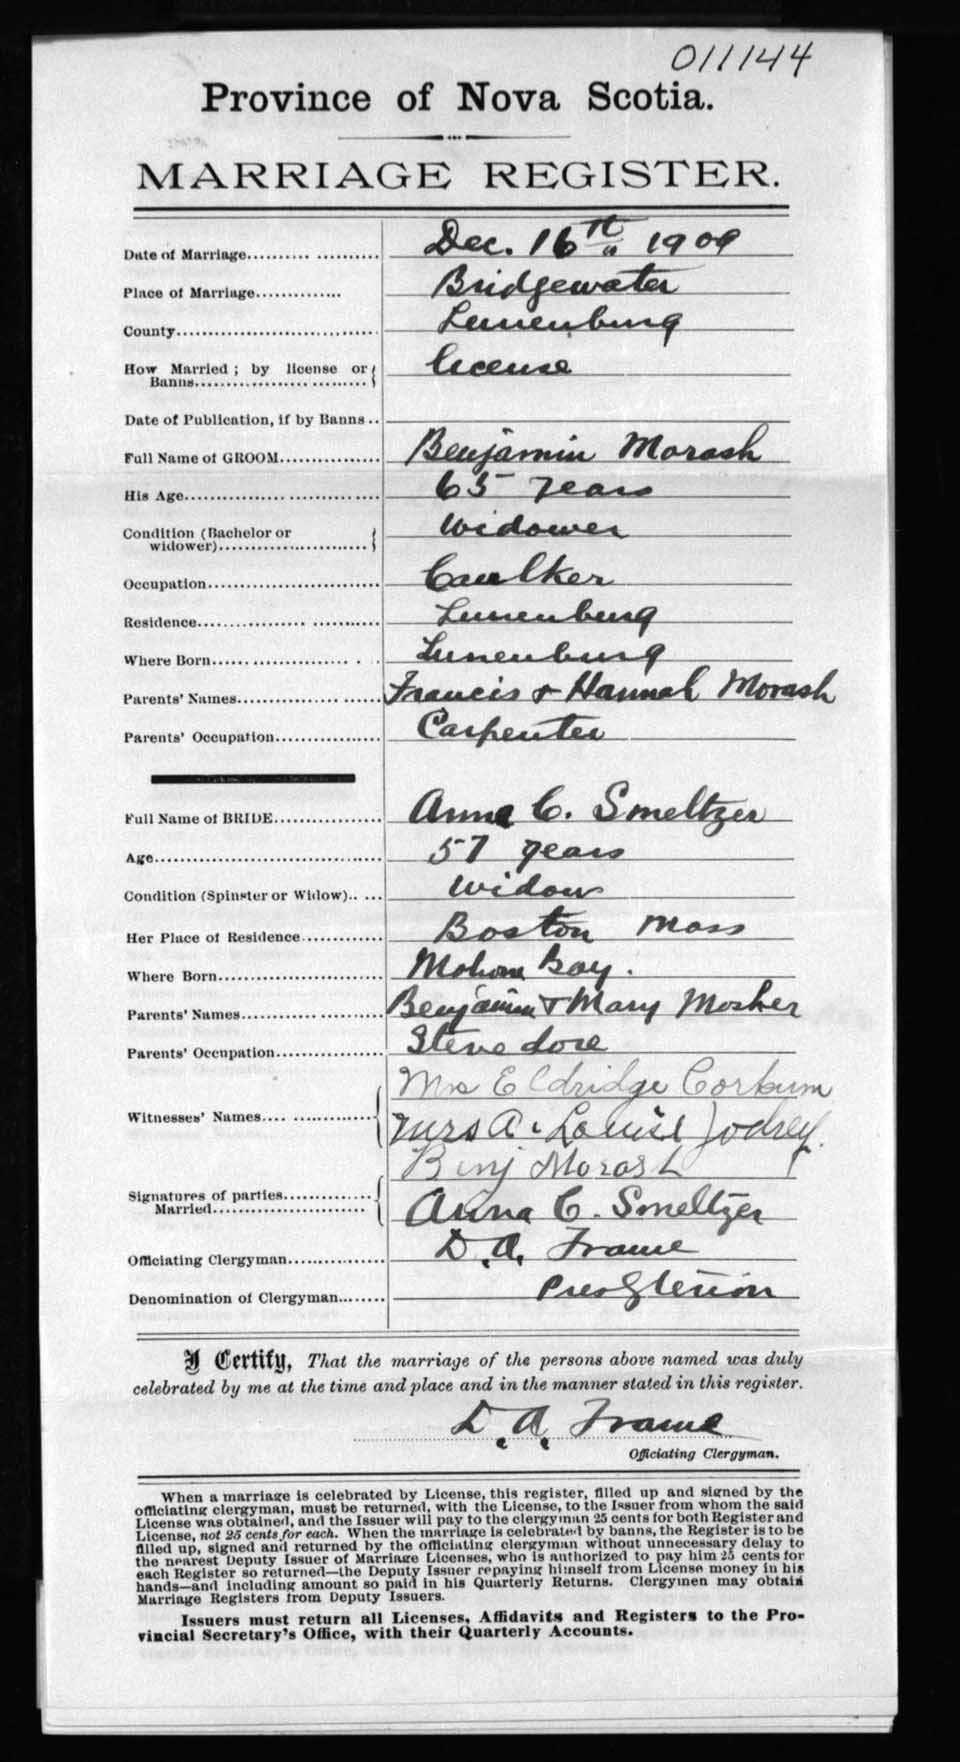 011144
Province of Nova Scotia.
MARRIAGE REGISTER.
Date of Marriage.................... Dec. 16th 1909
Place of Marriage.............. Bridgewater
County............................... Lunenburg
How Married ; by license or License
Banns...........................
Date of Publication, if by Banns ..
Full Name of GROOM................ Benjamin Morash
His Age............................... 65 years
Condition (Bachelor or widower
widower)........................
Occupation........................... Caulker
Residence............................ Lunenburg
Where Born.......................... Lunenburg
Parents' Names...................... Francis & Hannah Morash
Parents' Occupation................. Carpenter
Full Name of BRIDE................. Anna C. Smeltzer
Age.................................... 57 years
Condition (Spinster or Widow)..... widow
Her Place of Residence............. Boston Mass
Where Born.......................... Mahone Bay.
Parents' Names...................... Benjamin & Mary Mosher
Parents' Occupation................. Stevedore
Mrs Eldridge Corkum
Witnesses' Names....................
Mrs A. Louise Jodrey.
Benj Morash
Signatures of parties..............
Married........................ Anna C. Smeltzer
Officiating Clergyman............... D. A. Frame
Denomination of Clergyman........ Presbyterian
I Certify, That the marriage of the persons above named was duly
celebrated by me at the time and place and in the manner stated in this register.
D. A. Frame
Officiating Clergyman.
When a marriage is celebrated by License, this register, filled up and signed by the
officiating clergyman, must be returned, with the License, to the Issuer from whom the said
License was obtained, and the Issuer will pay to the clergyman 25 cents for both Register and
License, not 25 cents for each. When the marriage is celebrated by banns, the Register is to be
filled up, signed and returned by the officiating clergyman without unnecessary delay to
the nearest Deputy Issuer of Marriage Licenses, who is authorized to pay him 25 cents for
each Register so returned—the Deputy Issuer repaying himself from License money in his
hands—and including amount so paid in his Quarterly Returns. Clergymen may obtain
Marriage Registers from Deputy Issuers.
Issuers must return all Licenses, Affidavits and Registers to the Pro-
vincial Secretary's Office, with their Quarterly Accounts.